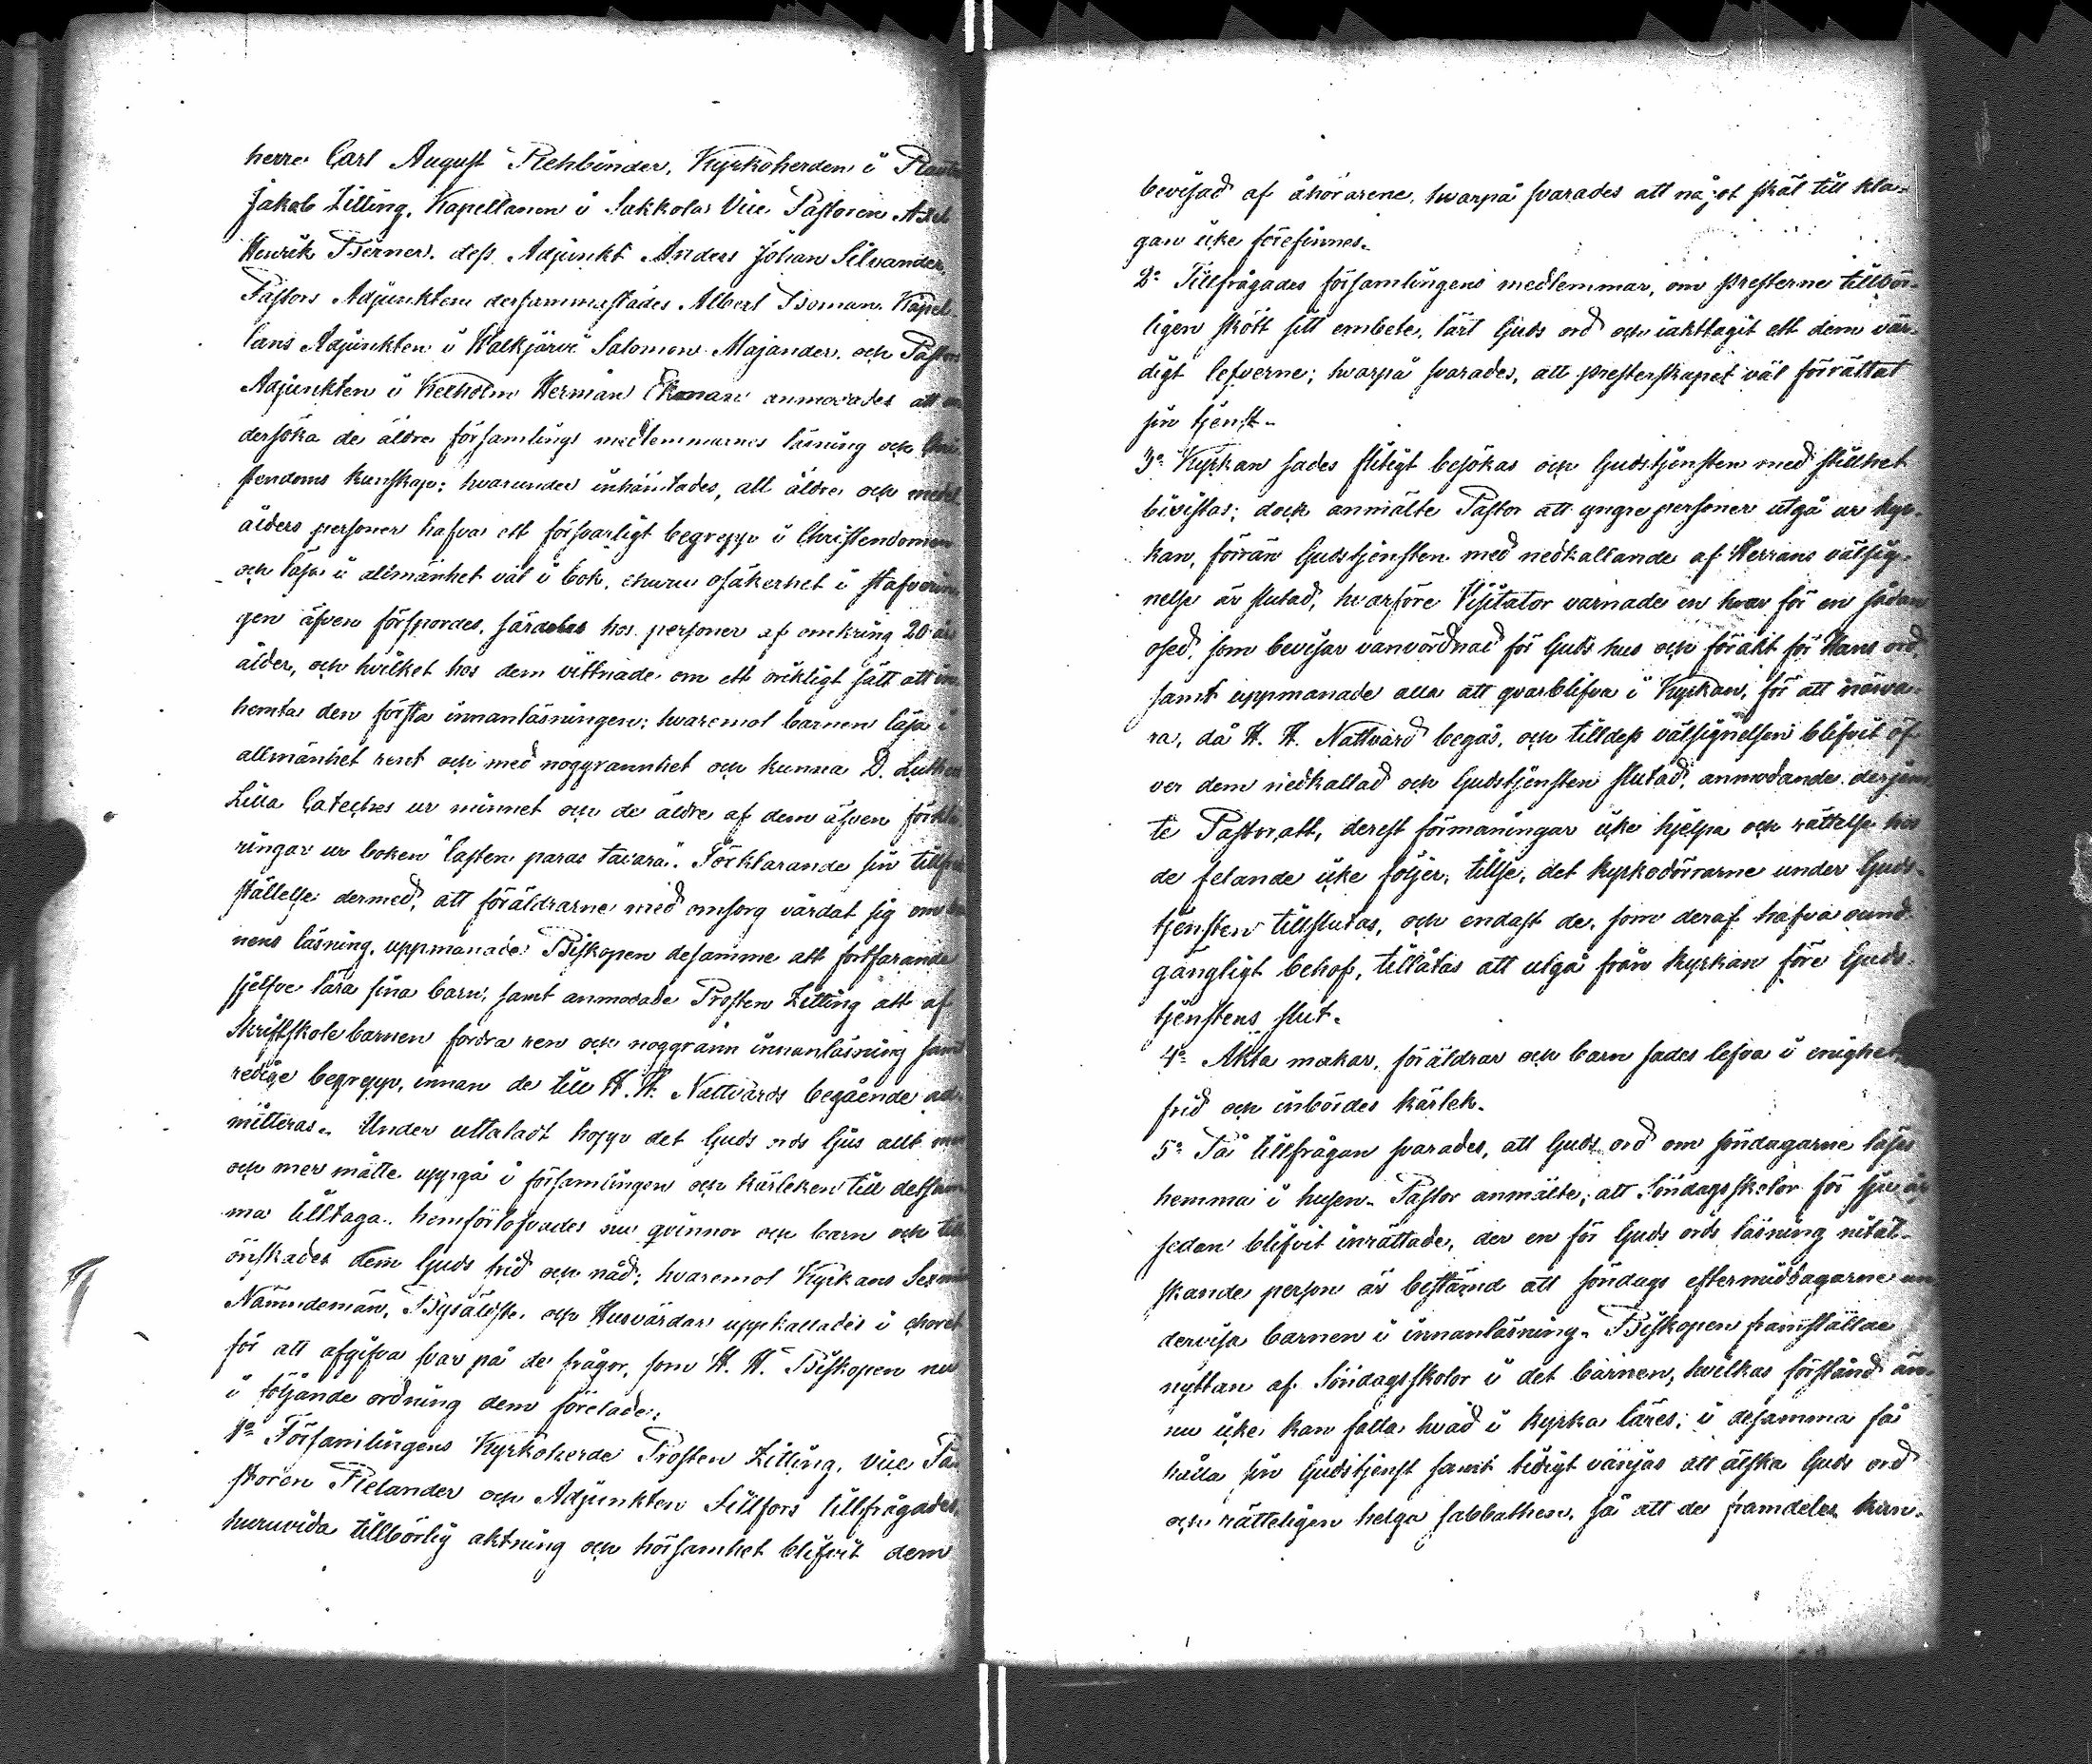 herre Carl August Rehbinder, Kyrkoherden i Rautu
Jakob Zilling, Kapellanen i Sakkola Vice Pastoren Axel
Henrik Berner, dess Adjunkt Anders Johan Silvander,
Pastors Adjunkten dersammastädes Albert Boman, Kapel-
lans Adjunkten i Walkjärvi Salomon Majander, och Pastors
Adjunkten i Kexholm Herman Ekman anmodades att un
dersöka de äldre församlings medlemmarnes läsning och Chri
stendoms kunskap; hvarunder inhämtades, att äldre och medel
ålders personer hafva ett försvarligt begrepp i Christendomen
och läsa i allmänhet väl i bok, ehuru osäkerhet i stafvnin
gen äfven förspordes, särdeles hos personer af omkring 20 års
ålder, och hvilket hos dem vittnade om ett oriktigt sätt att in
hemta den första innanläsningen; hvaremot barnen läsa i
allmänhet rent och med noggrannhet och kunna D. Luthers
Lilla Cateches ur minnet och de äldre af dem äfven förkla
ringar ur boken "lasten paras tavara". Förklarande sin tillfreds
ställelse dermed, att föräldrarne med omsorg vårdat sig om bar
nens läsning, uppmanade Biskopen desamme att fortfarande
sjelfve lära sina barn, samt anmodade Prosten Zilling att af
Skriftskole barnen fordra ren och noggrann innanläsning samt
redige begrepp, innan de till H. H. Nattvards begående ad-
mitteras. Under uttaladt hopp det Guds ords ljus allt mer
och mer måtte uppgå i församlingen och kärleken till detsam
ma tilltaga, hemförlofvades nu qvinnor och barn och till
önskades dem Guds frid och nåd; hvaremot Kyrkans Sexmän
Nämndemän, Byäldste, och Husvärdar uppkallades i choret
för att afgifva svar på de frågor, som H. H. Biskopen nu
i följande ordning dem förelade:
1:o Församlingens Kyrkoherde Prosten Zilling, Vice Pa
storen Relander och Adjunkten Sillfors tillfrågades,
huruvida tillbörlig aktning och hörsamhet blifvit dem
bevisad af åhörarene, hvarpå svarades att något skäl till kla-
gan icke förefinnes.
2:o Tillfrågades församlingens medlemmar, om presterne tillbör-
ligen skött sitt embete, lärt Guds ord och iakttagit ett dem vär-
digt lefverne; hvarpå svarades, att presterskapet väl förrättat
sin tjenst.
3:o Kyrkan sades flitigt besökas och Gudstjensten med stillhet
bivistas; dock anmälte Pastor att yngre personer utgå ur kyr-
kan, förrän Gudstjensten med nedkallande af Herrans välsig-
nelse är slutad, hvarföre Visitator varnade en hvar för en sådan
osed, som bevisar vanvördnad för Guds hus och förakt för Hans ord,
samt uppmanade alla att qvarblifva i Kyrkan, för att närva-
ra, då H. H. Nattvard begås, och tilldess välsignelsen blifvit öf-
ver dem nedkallad och Gudstjensten slutad, anmodande derjem-
te Pastor att, derest förmaningar icke hjelpa och rättelse hos
de felande icke följer, tillse, det kyrkodörrarne under Guds-
tjensten tillslutas, och endast de, som deraf hafva ound-
gängligt behof, tillåtas att utgå från kyrkan före Guds-
tjenstens slut.
4:o Äkta makar, föräldrar och barn sades lefva i enighet
frid och inbördes kärlek.
5:o På tillfrågan svarades, att Guds ord om söndagarne läses
hemma i husen. Pastor anmälte, att Söndagsskolor för sju år
sedan blifvit inrättade, der en för Guds ords läsning nitäl-
skande person är bestämd att söndags eftermiddagarne un
dervisa barnen i innanläsning. Biskopen framställde
nyttan af Söndagsskolor i det barnen, hvilkas förstånd än-
nu icke kan fatta hvad i kyrka läres, i desamma få
hålla sin Gudstjenst samt tidigt vänjas att älska Guds ord
och rätteligen helga sabbathen, så att de framdeles kun-